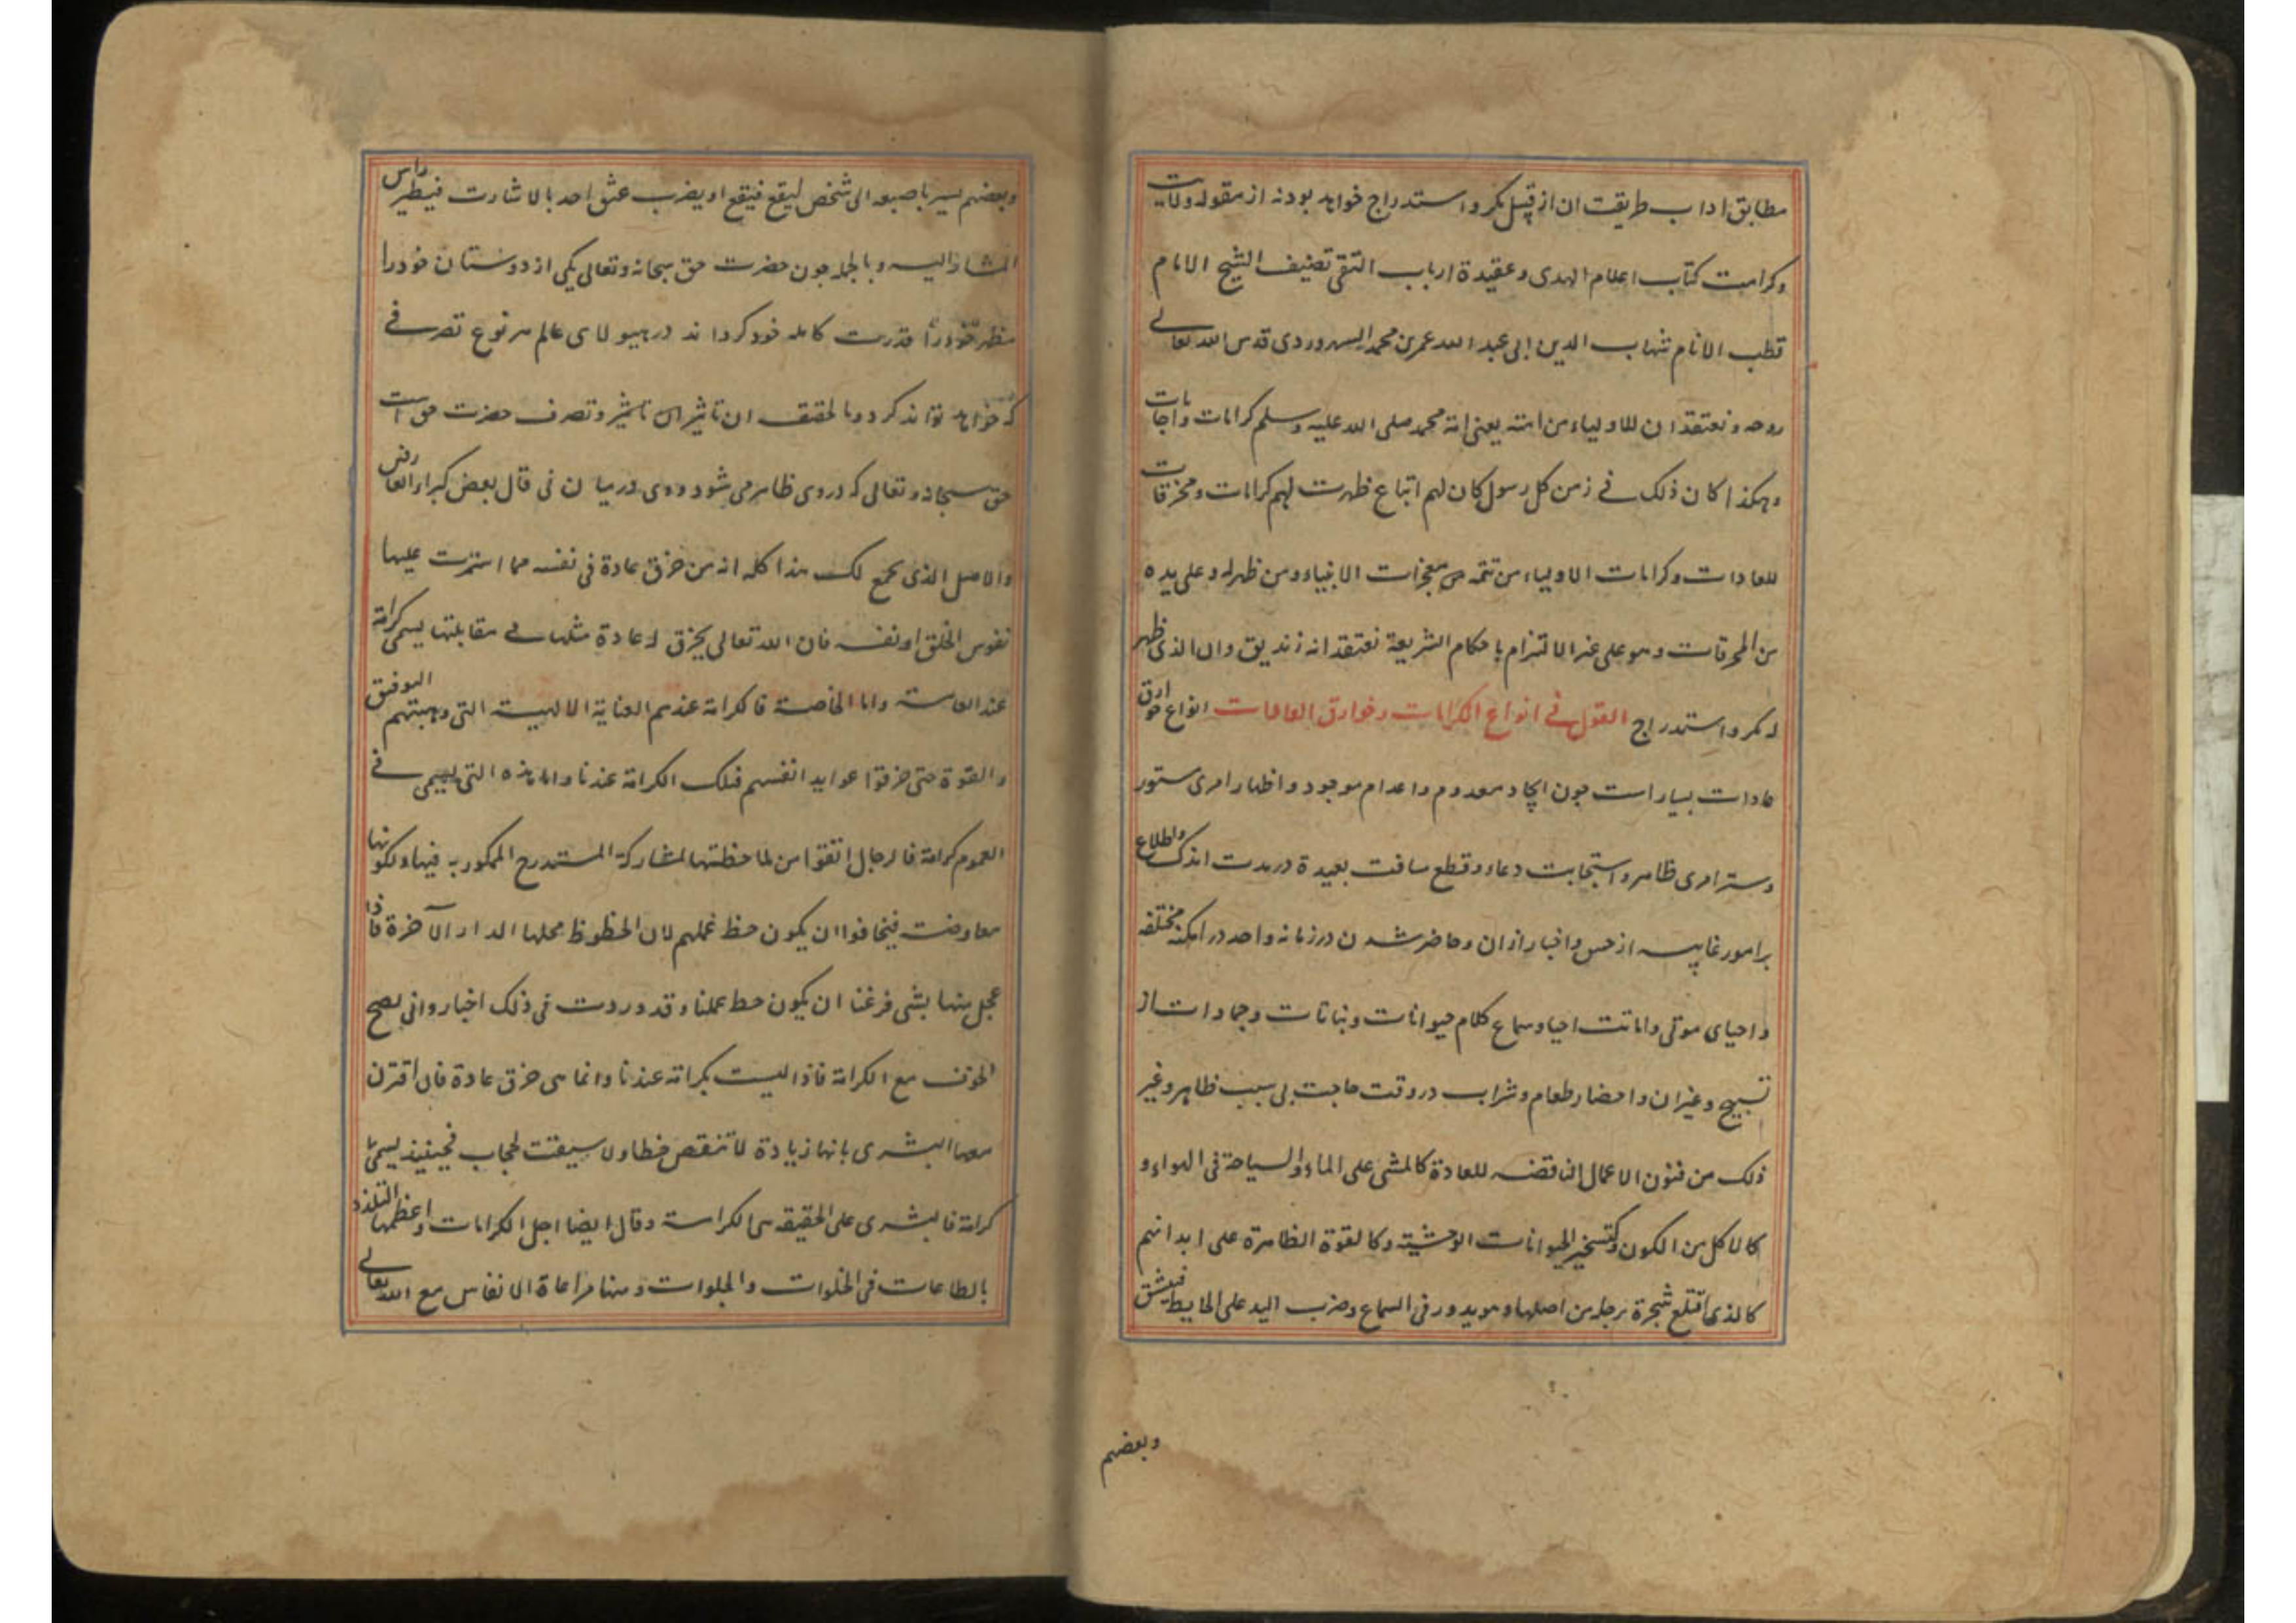 مطابق اداب طریقت ان از قبیل مکر و استدراج خواهد بود نه از مقوله ولایت
و کرامت کتاب اعلام الهدی و عقیدة ارباب التقی تصنیف الشیخ الامام
قطب الانام شهاب الدین ابی عبد الله عمر بن محمد السهروردی قدس الله تعالی
روحه و نعتقد ان للاولیاء من امته یعنی امة محمد صلی الله علیه وسلم کرامات واجابات
وهکذا کان ذلک فی زمن کل رسول کان لهم اتباع ظهرت لهم کرامات ومخرقات
للعادات وکرامات الاولیاء من تتمه معجزات الانبیاء ومن ظهر له وعلی یده
من المخرقات وهو علی غیر الالتزام باحکام الشریعة نعتقد انه زندیق وان الذی ظهر
له مکر واستدراج القول فی انواع الکرامات وخوارق العادات انواع خوارق
عادات بسیار است چون ایجاد معدوم و اعدام موجود و اظهار امری مستور
و ستر امری ظاهر و استجابت دعاء و قطع مسافت بعیدة در مدت اندک و اطلاع
بر امور غایبه از حس و اخبار از ان و حاضر شدن در زمانه واحد در امکنه مختلفه
و احیای موتی و اماتت احیا و سماع کلام حیوانات و نباتات و جمادات از
تسبیح و غیر ان و احضار طعام و شراب در وقت حاجت بی سبب ظاهر و غیر
ذلک من فنون الاعمال الناقضه للعادة کالمشی علی الماء والسیاحة فی الهواء و
کالاکل من الکون وکتسخیر الحیوانات الوحشیته وکالقوة الظاهرة علی ابدانهم
کالذی اقتلع شجرة برجله من اصلها وهو یدور فی السماع وضرب الید علی الحایط فینشق
وبعضهم
وبعضهم یسیر باصبعه الی شخص لیقع فیقع او یضرب عنق احد بالاشارت فیطیر راس
المشار الیه و بالجمله چون حضرت حق سبحانه وتعالی یکی از دوستان خود را
مظهر خود را قدرت کامله خود کرداند در هیولای عالم هر نوع تصرفی
که خواهد تواند کرد و بالحقیقت ان تاثیر و تصرف حضرت حق است
حق سبحانه و تعالی که در وی ظاهر می شود و وی در میان نی قال بعض کبراء العارفین
والاصل الذی یجمع لک هذا کله انه من خرق عادة فی نفسه مما استمرت علیها
نفوس الخلق او نفسه فان الله تعالی یخرق له عادة مثلها فی مقابلتها یسمی کرامة
عند العامة واما الخاصة فالکرامة عندهم العنایة الالهیت التی وهبتهم التوفیق
والقوة حتی خرقوا عواید انفسهم فتلک الکرامة عندنا واما هذه التی یسمی فی
العموم کرامة فالرجال اتقوا من ملاحظتها لمشارکة المستدرج الممکور به فیها ولکونها
معاوضت فیخافوا ان یکون حظ عملهم لان الحظوظ محلها الدار الآخرة فاذا
عجل منها بشی فزعنا ان یکون حظ عملنا وقد وردت فی ذلک اخبار وانی یصح
الخوف مع الکرامة فاذا لیست بکرامة عندنا وانما هی خرق عادة فان اقترن
معها البشری بانها زیادة لا تنقص حظا ولا سیقت لحجاب فحینئذ یسمی
کرامة فالبشری علی الحقیقه هی الکرامة وقال ایضا اجل الکرامات واعظمها التلذذ
بالطاعات فی الخلوات والجلوات ومنها مراعاة الانفاس مع الله تعالی